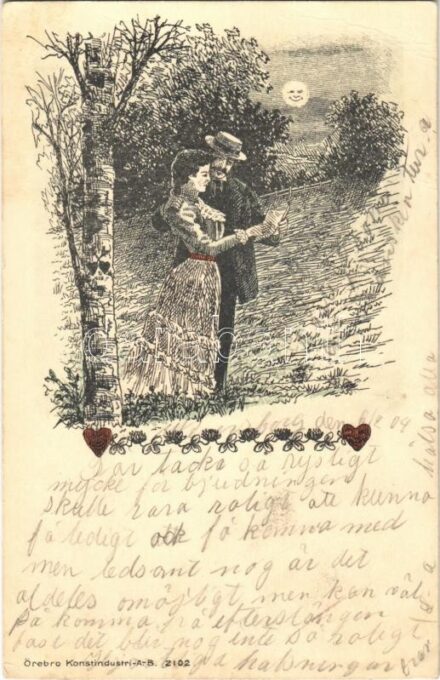 den 6/8 09
Får tacka så rysligt
mycke för bjudningen
skulle vara roligt att kunna
få ledigt och få komma med
men ledsamt nog är det
aldeles omöjligt men kan väl
få komma på efterslängen
fast det blir nog inte så roligt
många halsningar från
hälsa alla
Örebro Konstindustri-A-B. 2102